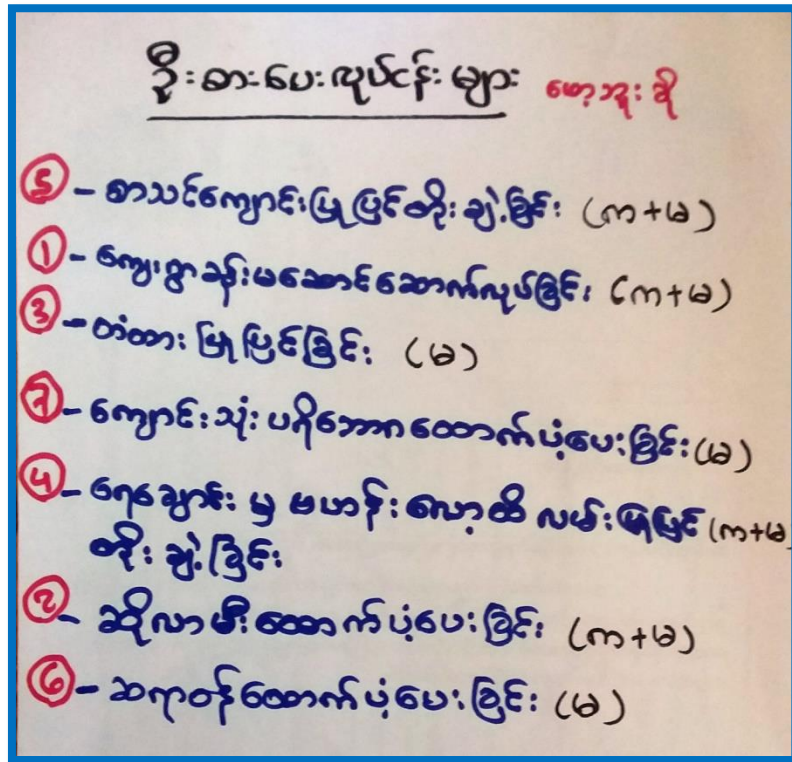 ဦးစားပေးလုပ်ငန်းများ ဖော့ဘူးခို
5 - စာသင်ကျောင်းပြုပြင်တိုးချဲ့ခြင်း (က+မ)
1 - ကျေးရွာခန်းမဆောင်ဆောက်လုပ်ခြင်း (က+မ)
3 - တံတားပြုပြင်ခြင်း (မ)
7 - ကျောင်းသုံးပရိဘောဂထောက်ပံ့ပေးခြင်း (မ)
4 - ရေချောင်းမှ မဟန်းလော့ထိ လမ်းပြုပြင် (က+မ
တိုးချဲ့ခြင်း
2 - ဆိုလာမီးထောက်ပံ့ပေးခြင်း (က+မ)
6 - ဆရာဝန်ထောက်ပံ့ပေးခြင်း (မ)